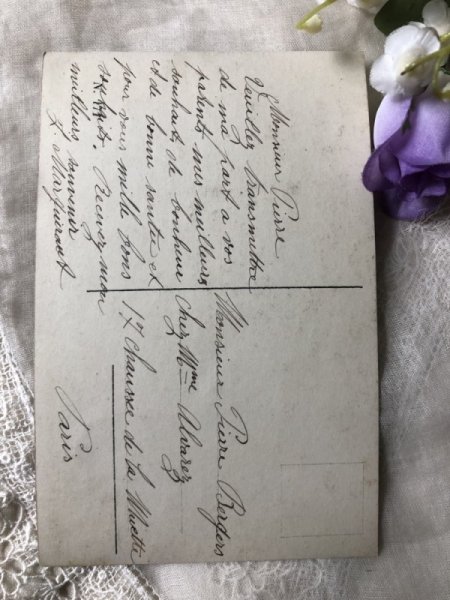 Monsieur Pierre
Veuillez transmettre
de ma part a vos
parents mes meilleurs
souhaits de bonheur
et de bonne santé et
pour vous mille bons
Recevez mon
meilleurs souvenir
Monsieur Pierre Bergers
Chez Mme Alvarez
17 Chaussée de la Muette
Paris